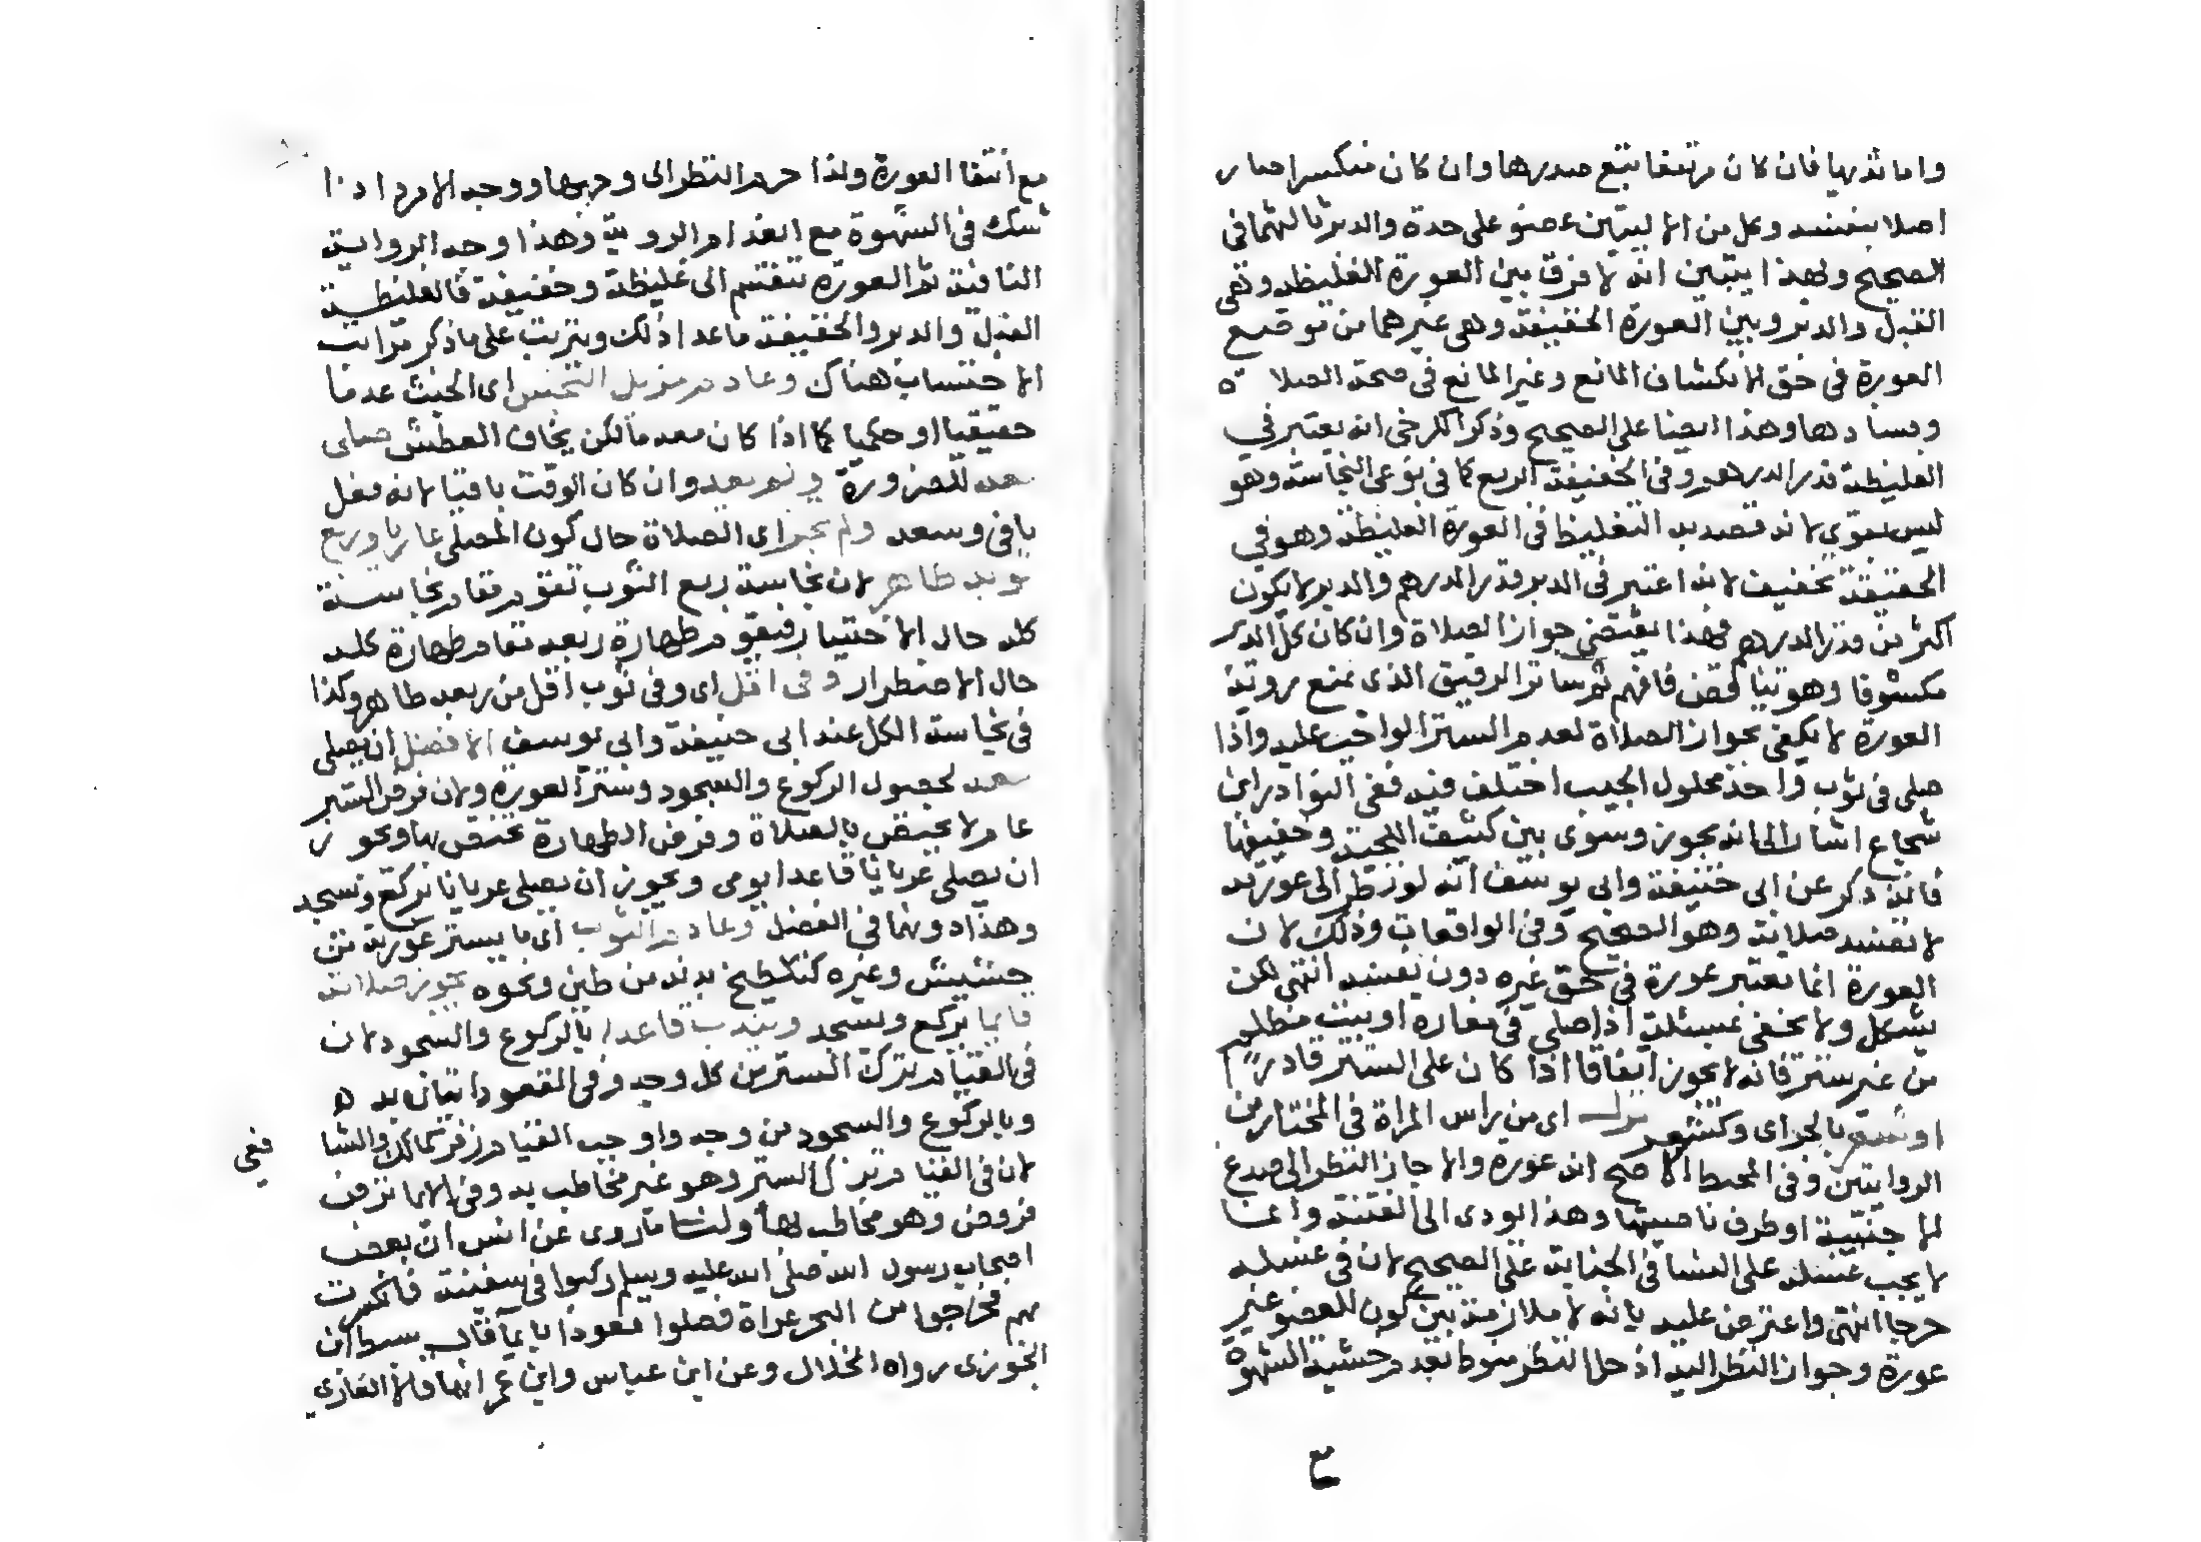 واما ثديها فان كان مرتفعا يتبع صدرها وان كان منكسرا صار
اصلا بنفسه وكل من الاليتين عضو على حدة والدبر ثالثهما في
الصحيح وبهذا يتبين انه لا فرق بين العورة الغليظة وهي
القبل والدبر وبين العورة الخفيفة وهي غيرهما من توضيع
العورة في حق الانكشاف المانع وغير المانع في صحة الصلاة
وفسادها وهذا ايضا على الصحيح وذكر الكرخي انه يعتبر في
الغليظة قدر الدرهم وفي الخفيفة الربع كما في نوعي النجاسة وهو
ليس بقوي لانه قصد به التغليظ في العورة الغليظة وهو في
الحقيقة تخفيف لانه اعتبر في الدبر قدر الدرهم والدبر لا يكون
اكثر من قدر الدرهم فهذا يقتضي جواز الصلاة وان كان كل الدبر
مكشوفا وهو تناقض فافهم ثم ساتر الرقيق الذي يمنع روية
العورة لا يكفي بجواز الصلاة لعدم الستر الواجب عليه واذا
صلى في ثوب واحد محلول الجيب اختلف فيه ففي النوادر ابن
شجاع اشار الى انه يجوز وسوى بين كثيف اللحية وخفيفها
فانه ذكر عن ابي حنيفة وابي يوسف انه لو نظر الى عورته
لا تفسد صلاته وهو الصحيح وفي الواقعات وذلك لان
العورة انما يعتبر عورة في حق غيره دون نفسه انتهى لكن
يشكل ولا يخفى بمسئلة اذا صلى في مغارة او بيت مظلم
من غير ستر فانه لا يجوز اتفاقا اذا كان على الستر قادرا
او شعر بالجر اى وكشعر نزل اى من راس المراة في المختار من
الروايتين وفي المحيط الاصح انه عورة والا جاز النظر الى صدغ
الاجنبية او طرف ناصيتها وهذا يودى الى الفتنة وانما
لا يجب غسله على النسا في الجنابة على الصحيح لان في غسله
حرجا انتهى واعترض عليه بانه لا ملازمة بين كون العضو غير
عورة وجواز النظر اليه اذ حل النظر منوط بعدم خشية الشهوة
مع انتفا العورة ولذا حرم النظر الى وجهها ووجه الامرد اذا
شك في الشهوة مع انعدام الروية وهذا وجه الرواية
النافية ثم العورة تنقسم الى غليظة وخفيفة فالغليظة
القبل والدبر والخفيفة ما عدا ذلك ويترتب على ما ذكر مراتب
الاحتساب هناك وعادم مزيل النجس اى الخبث عدما
حقيقيا او حكميا كما اذا كان معه ما لكن يخاف العطش صلى
معه للضرورة ولم يعد وان كان الوقت باقيا لانه فعل
ما في وسعه ولم يجز اى الصلاة حال كون المصلى عاريا وربع
ثوبه طاهر لان نجاسة ربع الثوب تقوم مقام نجاسة
كله حال الاختيار فيقوم طهارة ربعه مقام طهارة كله
حال الاضطرار وفي اقل اى وفي ثوب اقل من ربعه طاهر وكذا
في نجاسة الكل عند ابي حنيفة وابي يوسف الافضل ان يصلى
معه لحصول الركوع والسجود وستر العورة ولان فرض الستر
عام لا يختص بالصلاة وفرض الطهارة مختص بها ويجوز
ان يصلي عريانا قاعدا يومى ويجوز ان يصلى عريانا يركع ويسجد
وهذا دونهما في الفضل وعادم الثوب اى ما يستر عورته من
حشيش وغيره كتلطيخ بدنه من طين ونحوه تجوز صلاته
قايما يركع ويسجد ويندب قاعدا بالركوع والسجود لان
في القيام يترك الستر من كل وجه وفي القعود اتيان به
وبالركوع والسجود من وجه واوجب القيام زفر كمالك والشا
ففي
لان في القيام ترك الستر وهو غير مخاطب به وفي الايما ترك
فروض وهو مخاطب بها ولنا ما روى عن انس ان بعض
اصحاب رسول الله صلى الله عليه وسلم ركبوا في سفينة فانكسرت
بهم فخرجوا من البحر عراة فصلوا قعودا بايما قال سبط ابن
الجوزى رواه الخلال وعن ابن عباس وابن عمر انهما قالا العارى